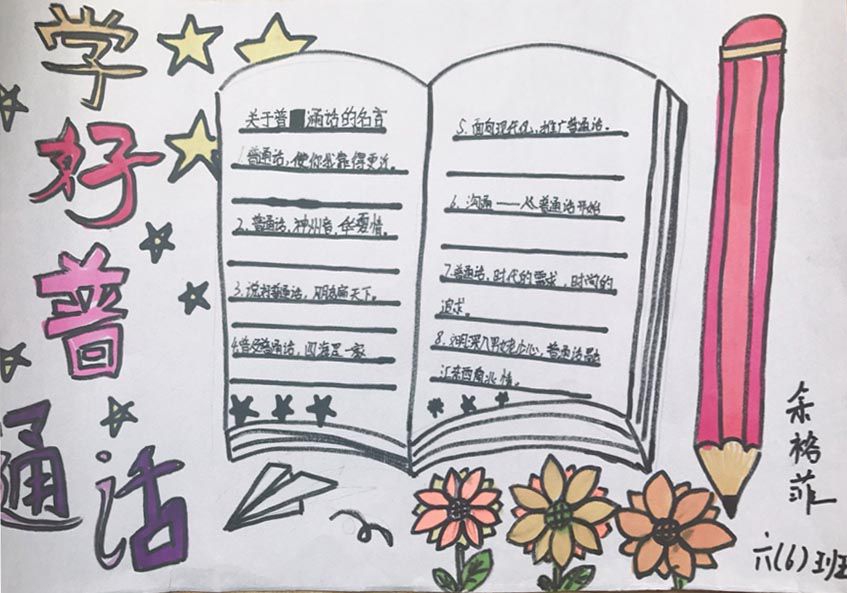 学好普通话
关于普通话的名言
1.普通话,使你我靠得更近。
2.普通话,神州音,华夏情。
3.说好普通话,朋友遍天下。
4.普及普通话,四海是一家
5.面向现代化,推广普通话。
6.沟通——从普通话开始
7.普通话,时代的需求,时尚的
追求。
8.文明深入男女老少心,普通话融
汇东西南北情。
余格菲
六(6)班